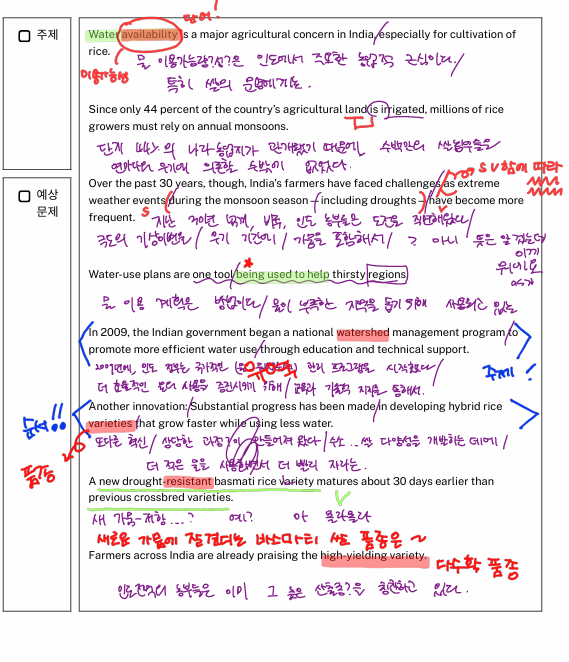 단어!
주제
Water availability is a major agricultural concern in India, especially for cultivation of
rice.
이용가능성
물 이용가능량?성?은 인도에서 주요한 농업적 근심이다.
특히 쌀의
Since only 44 percent of the country's agricultural land is irrigated, millions of rice
growers must rely on annual monsoons.
단지 44%의 나라 농업지가 때문에 수백만의
의존할 수밖에 없었다.
예상
문제
Over the past 30 years, though, India's farmers have faced challenges as extreme
~함에 따라
weather events during the monsoon season – including droughts – have become more
frequent.
S
지난 30년 인도 농부들은 도전을 직면해왔다
극도의 / 우기 기간에 / 가뭄을 포함해서 / ? 아니 뜻은 알겠는데
이게
Water-use plans are one tool being used to help thirsty regions.
물 이용 계획은 방법이다 / 물이 부족한 지역을 돕기 위해 사용되고 있는
In 2009, the Indian government began a national watershed management program to
promote more efficient water use through education and technical support.
주제!
2009년에, 인도 정부는 국가적인 관리 프로그램을 시작했다
더 효율적인 물의 사용을 증진시키기 위해 / 교육과 기술적 지지를 통해서.
순서!!
Another innovation: Substantial progress has been made in developing hybrid rice
varieties that grow faster while using less water.
품종
또다른 혁신 / 상당한 과정이 만들어져 왔다 / 쌀 다양성을 개발하는 데에 /
더 적은 물을 사용하면서 더 빨리 자라는.
A new drought-resistant basmati rice variety matures about 30 days earlier than
previous crossbred varieties.
새 가뭄-저항....? 에? 아 몰라몰라
새로운 가뭄에 잘 견디는 바스마티 쌀 품종은 ~
Farmers across India are already praising the high-yielding variety.
다수확 품종
인도전역의 농부들은 이미 그 높은 칭찬하고 있다.